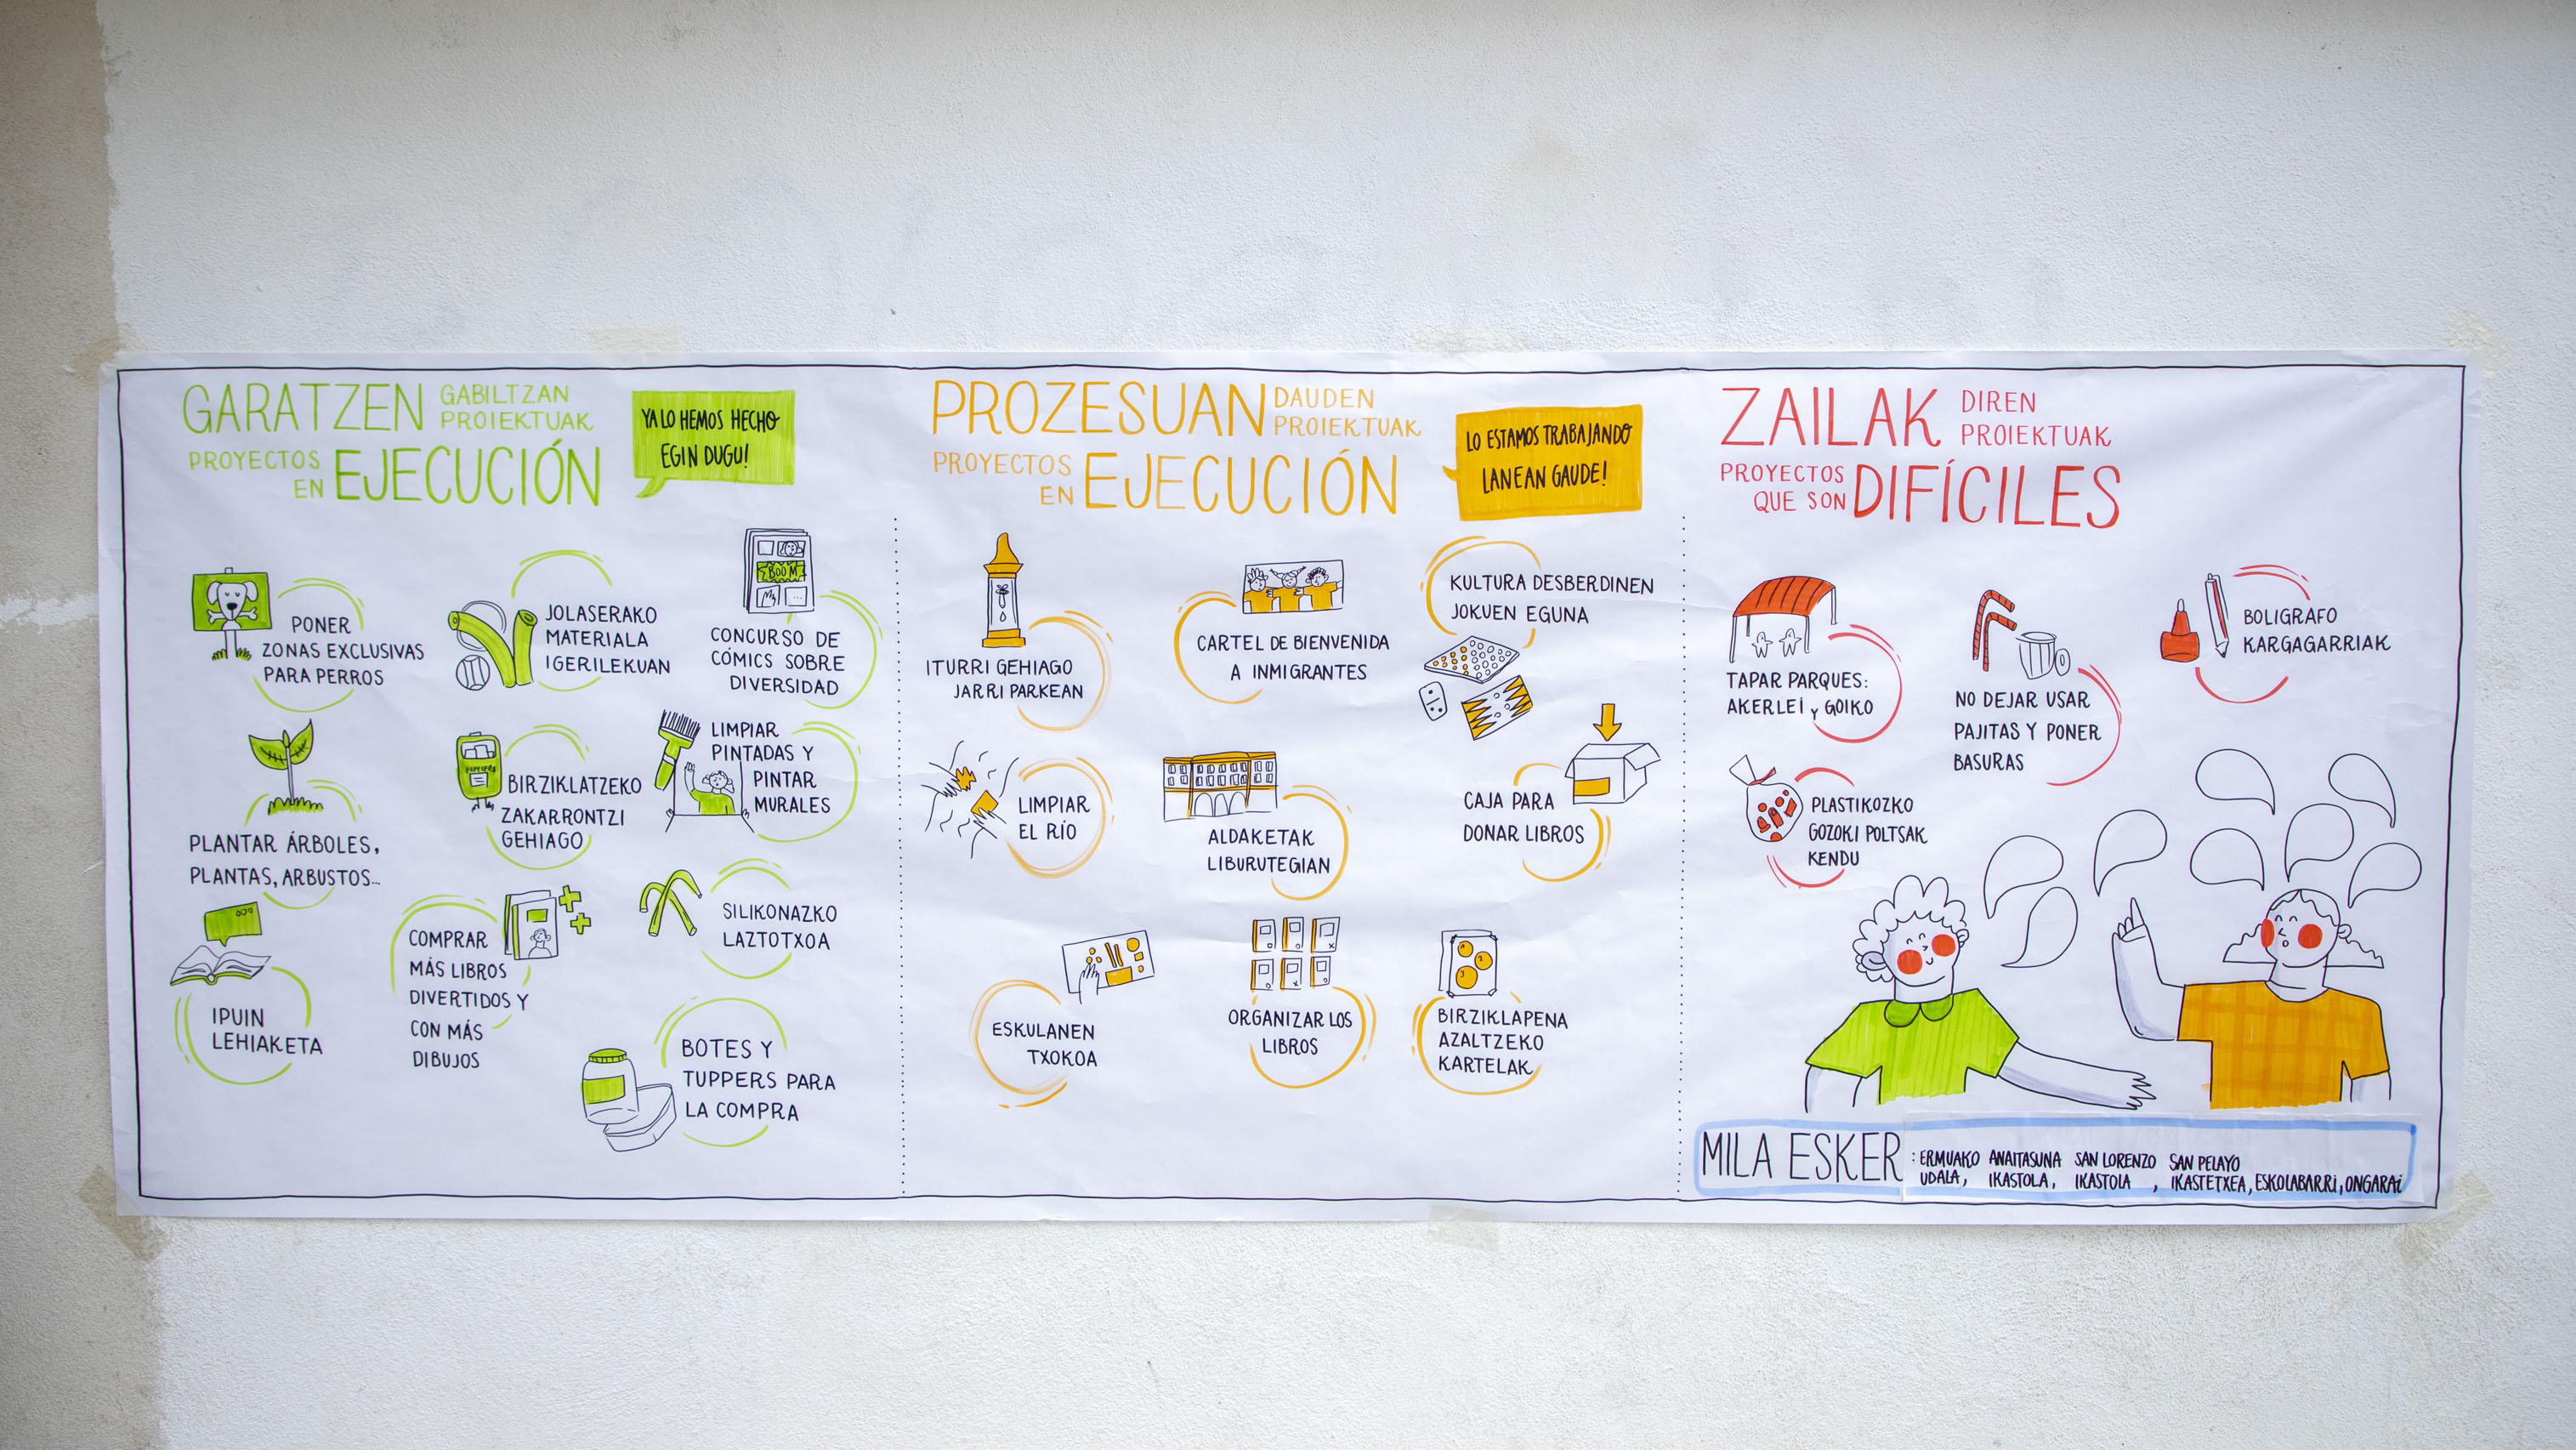 GARATZEN GABILTZAN
PROIEKTUAK
PROYECTOS
EN EJECUCIÓN
YA LO HEMOS HECHO
EGIN DUGU!
PONER
ZONAS EXCLUSIVAS
PARA PERROS
JOLASERAKO
MATERIALA
IGERILEKUAN
BOOM
CONCURSO DE
CÓMICS SOBRE
DIVERSIDAD
PLANTAR ÁRBOLES,
PLANTAS, ARBUSTOS...
BIRZIKLATZEKO
ZAKARRONTZI
GEHIAGO
LIMPIAR
PINTADAS Y
PINTAR
MURALES
IPUIN
LEHIAKETA
COMPRAR
MÁS LIBROS
DIVERTIDOS Y
CON MÁS
DIBUJOS
SILIKONAZKO
LAZTOTXOA
BOTES Y
TUPPERS PARA
LA COMPRA
PROZESUAN DAUDEN
PROIEKTUAK
PROYECTOS
EN EJECUCIÓN
LO ESTAMOS TRABAJANDO
LANEAN GAUDE!
ITURRI GEHIAGO
JARRI PARKEAN
CARTEL DE BIENVENIDA
A INMIGRANTES
KULTURA DESBERDINEN
JOKUEN EGUNA
LIMPIAR
EL RÍO
ALDAKETAK
LIBURUTEGIAN
CAJA PARA
DONAR LIBROS
ESKULANEN
TXOKOA
ORGANIZAR LOS
LIBROS
BIRZIKLAPENA
AZALTZEKO
KARTELAK
ZAILAK DIREN
PROIEKTUAK
PROYECTOS
QUE SON DIFÍCILES
TAPAR PARQUES:
AKERLEI Y GOIKO
NO DEJAR USAR
PAJITAS Y PONER
BASURAS
BOLIGRAFO
KARGAGARRIAK
PLASTIKOZKO
GOZOKI POLTSAK
KENDU
MILA ESKER: ERMUAKO ANAITASUNA SAN LORENZO SAN PELAYO
UDALA, IKASTOLA, IKASTOLA, IKASTETXEA, ESKOLABARRI, ONGARAI